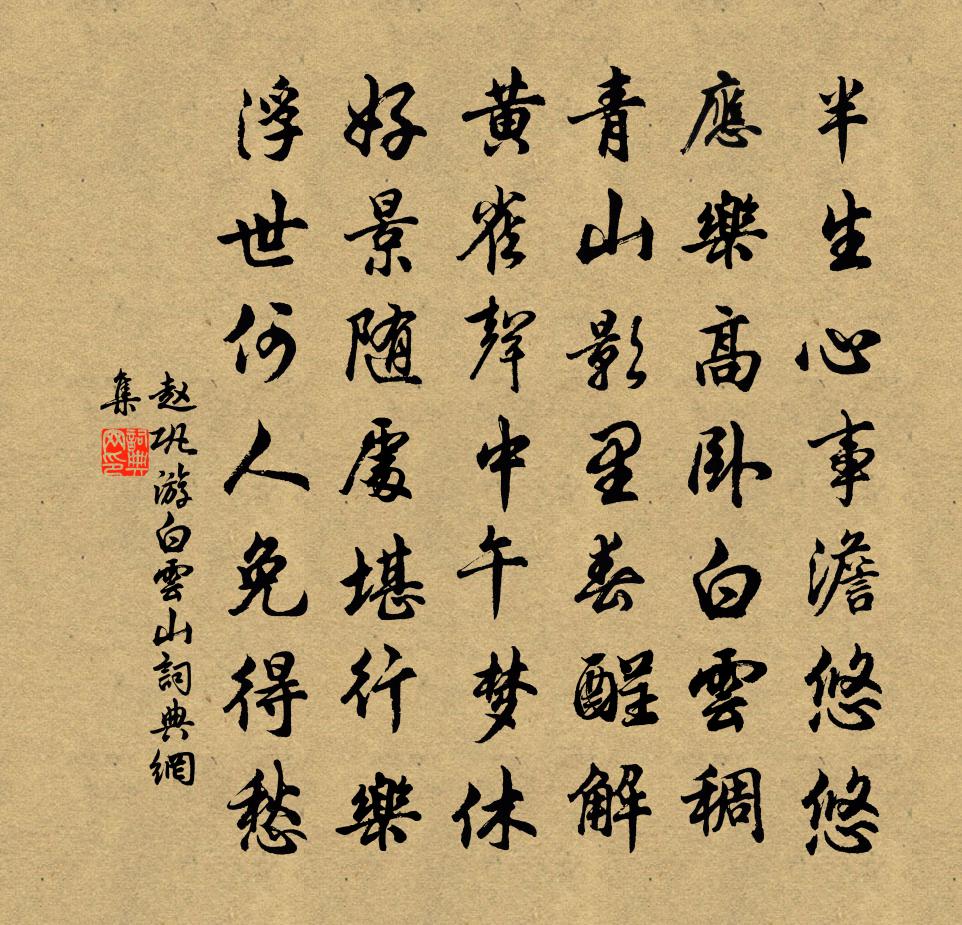 半生心事澹悠悠
應樂高卧白雲稠
青山影里春醒解
黄雀聲中午梦休
好景随處堪行樂
浮世何人免得愁
赵巩游白雲山詞典網
集
詞典網印